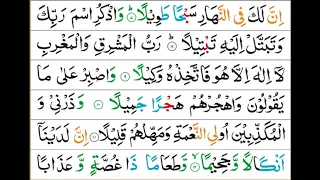 اِنَّ لَكَ فِی النَّهَارِ سَبْحًا طَوِیْلًا ۞ وَاذْكُرِ اسْمَ رَبِّكَ
وَتَبَتَّلْ اِلَیْهِ تَبْتِیْلًا ۞ رَبُّ الْمَشْرِقِ وَالْمَغْرِبِ
لَاۤ اِلٰهَ اِلَّا هُوَ فَاتَّخِذْهُ وَكِیْلًا ۞ وَاصْبِرْ عَلٰی مَا
یَقُوْلُوْنَ وَاهْجُرْهُمْ هَجْرًا جَمِیْلًا ۞ وَذَرْنِیْ وَ
الْمُكَذِّبِیْنَ اُولِی النَّعْمَةِ وَمَهِّلْهُمْ قَلِیْلًا ۞ اِنَّ لَدَیْنَاۤ
اَنْكَالًا وَّجَحِیْمًا ۞ وَّطَعَامًا ذَا غُصَّةٍ وَّعَذَابًا